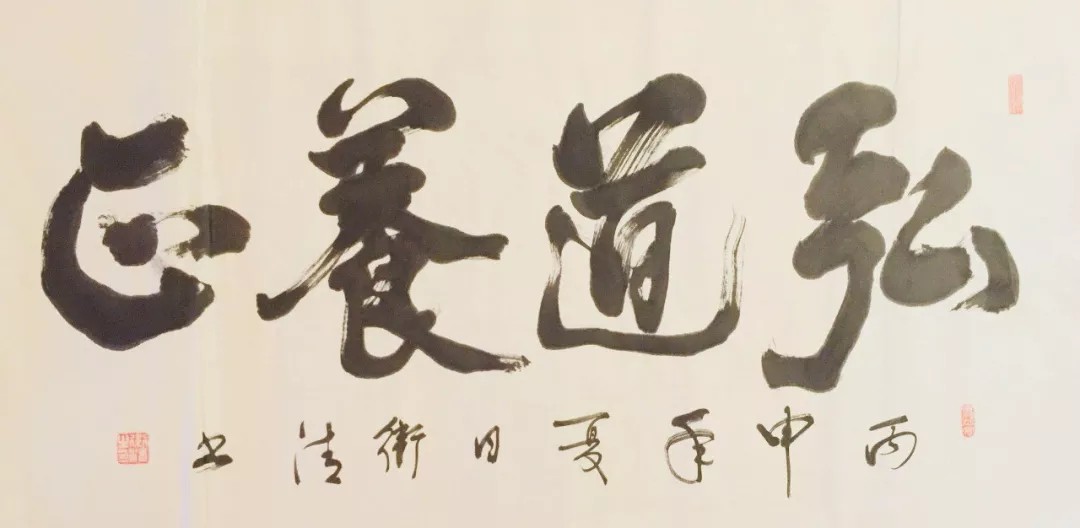 弘道養正
丙申年夏日衛清书